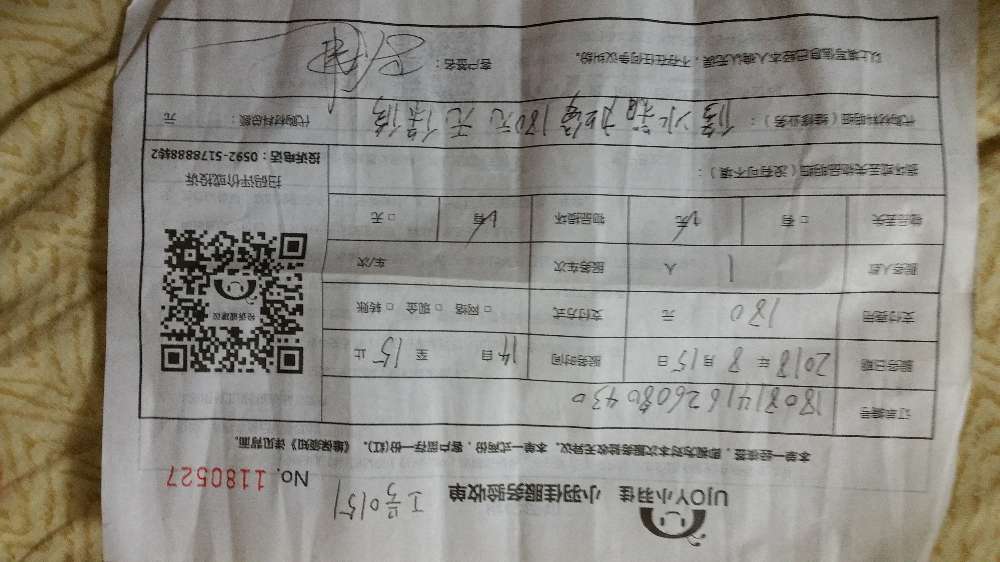 UJOY小羽佳 小羽佳服务验收单
工号0151
No. 1180527
本单一经签签，即视为对本次服务验收无异议。本单一式两份，客户留存一份(红)。《维保须知》详见背面。
订单编号 1808141626080430
服务日期 2018 年 8 月 15 日 服务时间 14 自 至 15 止
支付费用 180 元 支付方式 □ 网络 □ 现金 □ 转账
服务人数 1 人 服务车次 车/次
物品丢失 □ 有 √ 无 物品损坏 √ 有 □ 无
投诉或建议
扫码评价或投诉
投诉电话：0592-5178888转2
损坏或丢失物品明细（没有可不填）：
代购材料明细（维修业务）： 修水箱 180元 无保修 代购材料总额： 元
以上填写信息已经本人确认无误，不存在任何争议纠纷。 客户签名：